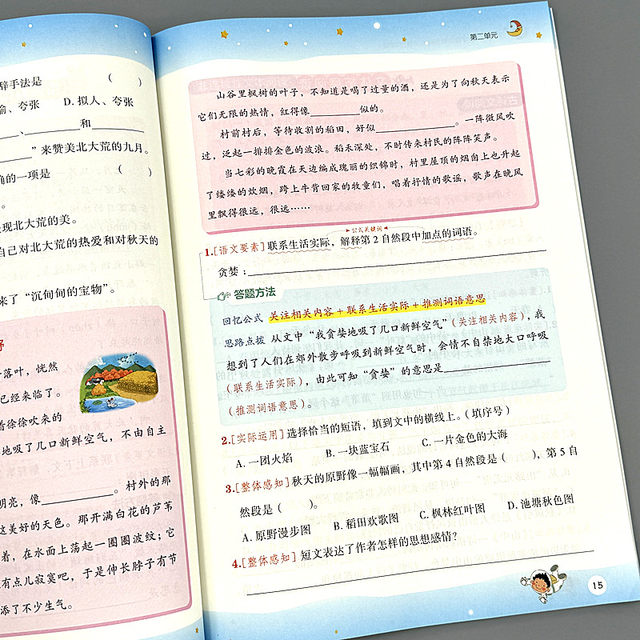 辞手法是 （ ）
喻、夸张 D. 拟人、夸张
、 和
”来赞美北大荒的九月。
确的一项是 （ ）
。
表现北大荒的美。
自己对北大荒的热爱和对秋天的
来了“沉甸甸的宝物”。
野
落叶，恍然
已经来临了。
着徐徐吹来的
地吸了几口新鲜空气，不由自主
明亮，像 。村外的那
这美好的天色。那开满白花的芦苇
着，在水面上荡起一圈圈波纹；它
有点儿寂寞吧，于是伸长脖子有节
添了不少生气。
第二单元
山谷里枫树的叶子，不知道是喝了过量的酒，还是为了向秋天表示
它们无限的热情，红得像 似的。
村前村后，等待收割的稻田，好似 。一阵微风吹
过，泛起一排排金色的波浪。稻禾深处，不时传来村民的阵阵笑声。
当七彩的晚霞在天边编成瑰丽的织锦时，村里屋顶的烟囱上也升起
了缕缕的炊烟，跨上牛背回家的牧童们，唱着抒情的歌谣，歌声在晚风
里飘得很远，很远……
公式关键词
1.[语文要素] 联系生活实际，解释第2自然段中加点的词语。
贪婪：
答题方法
回忆公式 关注相关内容+联系生活实际+推测词语意思
思路点拨 从文中“我贪婪地吸了几口新鲜空气”（关注相关内容），我
想到了人们在郊外散步呼吸到新鲜空气时，会情不自禁地大口呼吸
（联系生活实际），由此可知“贪婪”的意思是
（推测词语意思）。
2.[实际运用] 选择恰当的短语，填到文中的横线上。（填序号）
A. 一团火焰 B. 一块蓝宝石 C. 一片金色的大海
3.[整体感知] 秋天的原野像一幅幅画，其中第4自然段是（ ），第5自
然段是（ ）。
A. 原野漫步图 B. 稻田欢歌图 C. 枫林红叶图 D. 池塘秋色图
4.[整体感知] 短文表达了作者怎样的思想感情？
15